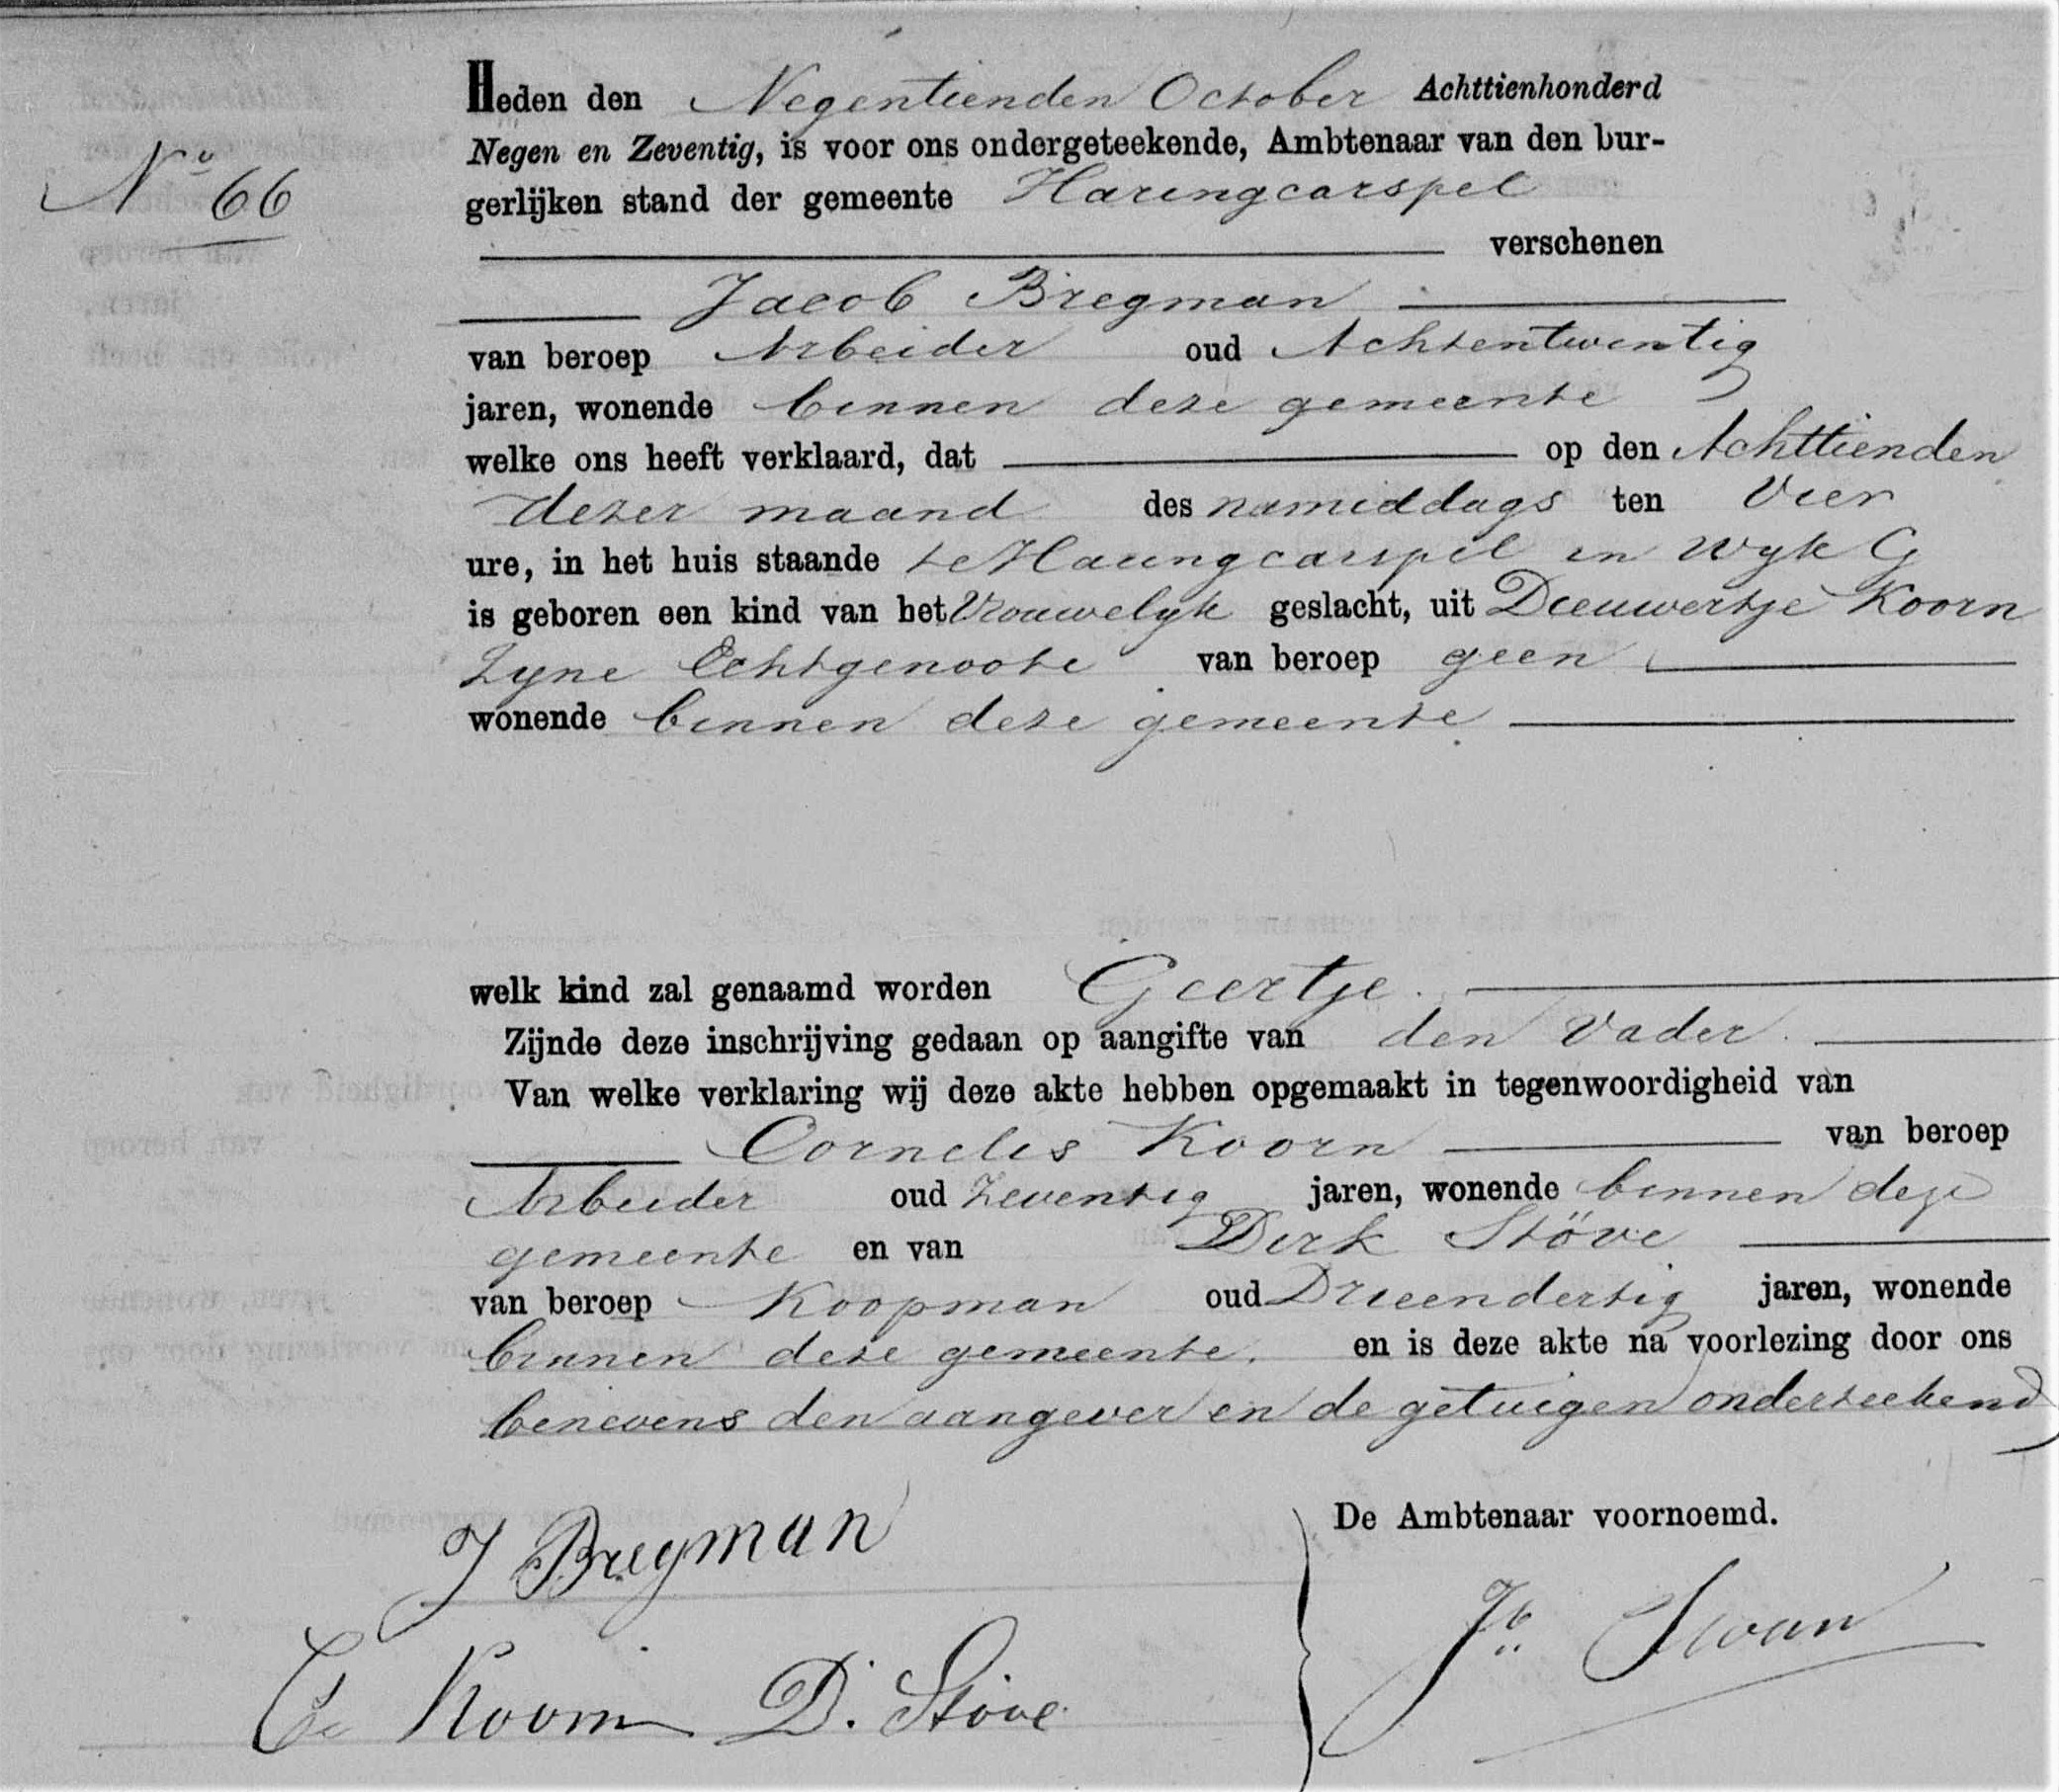 Heden den Negentienden October Achttienhonderd
Negen en Zeventig, is voor ons ondergeteekende, Ambtenaar van den bur-
No 66
gerlijken stand der gemeente Haringcarspel
verschenen
Jacob Bregman
van beroep Arbeider oud Achtentwentig
jaren, wonende binnen deze gemeente
welke ons heeft verklaard, dat op den Achttienden
dezer maand des namiddags ten Vier
ure, in het huis staande te Haringcarspel in Wyk G
is geboren een kind van het Vrouwelyk geslacht, uit Dieuwertje Koorn
Zyne Echtgenoote van beroep geen
wonende binnen deze gemeente
welk kind zal genaamd worden Geertje.
Zijnde deze inschrijving gedaan op aangifte van den Vader.
Van welke verklaring wij deze akte hebben opgemaakt in tegenwoordigheid van
Cornelis Koorn van beroep
Arbeider oud Zeventig jaren, wonende binnen deze
gemeente en van Dirk Stöve
van beroep Koopman oud Drieendertig jaren, wonende
binnen deze gemeente. en is deze akte na voorlezing door ons
benevens den aangever en de getuigen onderteekend
De Ambtenaar voornoemd.
J Bregman
Jb Swan
Koorn D. Stöve